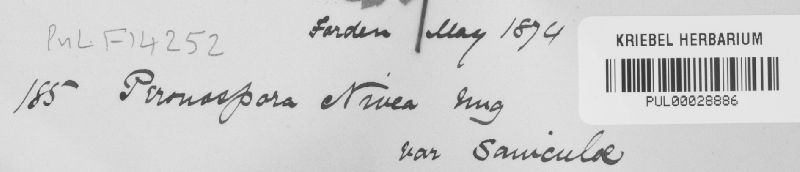 PUL F14252
Forden May 1874
KRIEBEL HERBARIUM
PUL00028886
185 Peronospora Nivea Ung
var Saniculæ